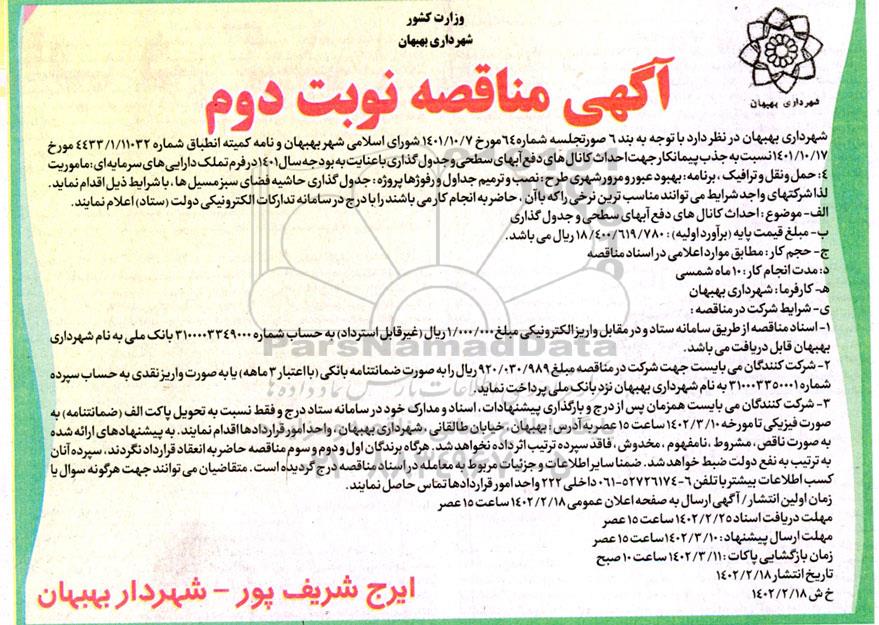 وزارت کشور
شهرداری بهبهان
شهرداری بهبهان
آگهی مناقصه نوبت دوم
شهرداری بهبهان در نظر دارد با توجه به بند ۶ صورتجلسه شماره ۶۴ مورخ ۱۴۰۱/۱۰/۷ شورای اسلامی شهر بهبهان و نامه کمیته انطباق شماره ۴۴۳۳/۱/۱۱۰۳۲ مورخ
۱۴۰۱/۱۰/۱۷ نسبت به جذب پیمانکار جهت احداث کانال های دفع آبهای سطحی و جدول گذاری با عنایت به بودجه سال ۱۴۰۱ در فرم تملک دارایی های سرمایه ای: ماموریت
۴: حمل و نقل و ترافیک ، برنامه: بهبود عبور و مرور شهری طرح: نصب و ترمیم جداول و رفوژها پروژه: جدول گذاری حاشیه فضای سبز مسیل ها ، با شرایط ذیل اقدام نماید.
لذا شرکتهای واجد شرایط می توانند مناسب ترین نرخی را که با آن ، حاضر به انجام کار می باشند را با درج در سامانه تدارکات الکترونیکی دولت (ستاد) اعلام نمایند.
الف- موضوع : احداث کانال های دفع آبهای سطحی و جدول گذاری
ب- مبلغ قیمت پایه (برآورد اولیه) : ۱۸/۴۰۰/۶۱۹/۷۸۰ ریال می باشد.
ج- حجم کار: مطابق موارد اعلامی در اسناد مناقصه
د: مدت انجام کار: ۱۰ ماه شمسی
هـ- کارفرما: شهرداری بهبهان
ی- شرایط شرکت در مناقصه :
۱- اسناد مناقصه از طریق سامانه ستاد و در مقابل واریز الکترونیکی مبلغ ۱/۰۰۰/۰۰۰ ریال (غیرقابل استرداد) به حساب شماره ۳۱۰۰۰۰۳۳۴۹۰۰۰ بانک ملی به نام شهرداری
بهبهان قابل دریافت می باشد.
۲- شرکت کنندگان می بایست جهت شرکت در مناقصه مبلغ ۹۲۰/۰۳۰/۹۸۹ ریال را به صورت ضمانتنامه بانکی (با اعتبار ۳ ماهه) یا به صورت واریز نقدی به حساب سپرده
شماره ۳۱۰۰۰۳۳۵۰۰۰۱ به نام شهرداری بهبهان نزد بانک ملی پرداخت نماید.
۳- شرکت کنندگان می بایست همزمان پس از درج و بارگذاری پیشنهادات ، اسناد و مدارک خود در سامانه ستاد درج و فقط نسبت به تحویل پاکت الف (ضمانتنامه) به
صورت فیزیکی تا مورخه ۱۴۰۲/۳/۱۰ ساعت ۱۵ عصر به آدرس : بهبهان ، خیابان طالقانی ، شهرداری بهبهان ، واحد امور قراردادها اقدام نمایند. به پیشنهادهای ارائه شده
به صورت ناقص ، مشروط ، نامفهوم ، مخدوش ، فاقد سپرده ترتیب اثر داده نخواهد شد. هرگاه برندگان اول و دوم و سوم مناقصه حاضر به انعقاد قرارداد نگردند، سپرده آنان
به ترتیب به نفع دولت ضبط خواهد شد. ضمنا سایر اطلاعات و جزئیات مربوط به معامله در اسناد مناقصه درج گردیده است. متقاضیان می توانند جهت هرگونه سوال یا
کسب اطلاعات بیشتر با تلفن ۶-۵۲۷۲۶۱۷۴-۰۶۱ داخلی ۲۲۲ واحد امور قراردادها تماس حاصل نمایند.
زمان اولین انتشار / آگهی ارسال به صفحه اعلان عمومی ۱۴۰۲/۲/۱۸ ساعت ۱۵ عصر
مهلت دریافت اسناد ۱۴۰۲/۲/۲۵ ساعت ۱۵ عصر
مهلت ارسال پیشنهاد : ۱۴۰۲/۳/۱۰ ساعت ۱۵ عصر
زمان بازگشایی پاکات : ۱۴۰۲/۳/۱۱ ساعت ۱۰ صبح
تاریخ انتشار ۱۴۰۲/۲/۱۸
خ ش ۱۴۰۲/۲/۱۸
ایرج شریف پور - شهردار بهبهان
ParsNamadData